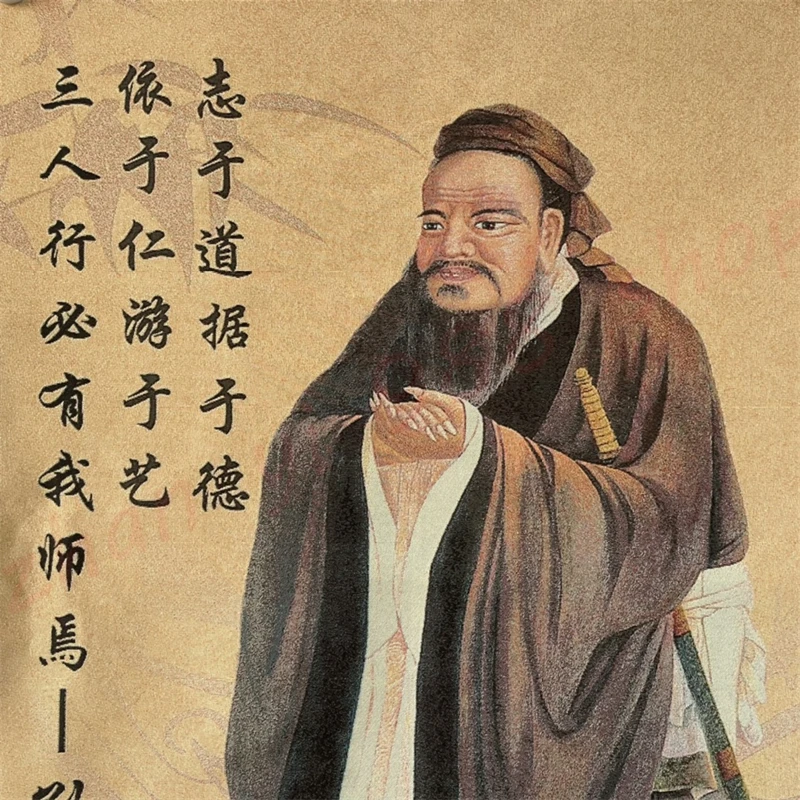 志于道据于德
依于仁游于艺
三人行必有我师焉—